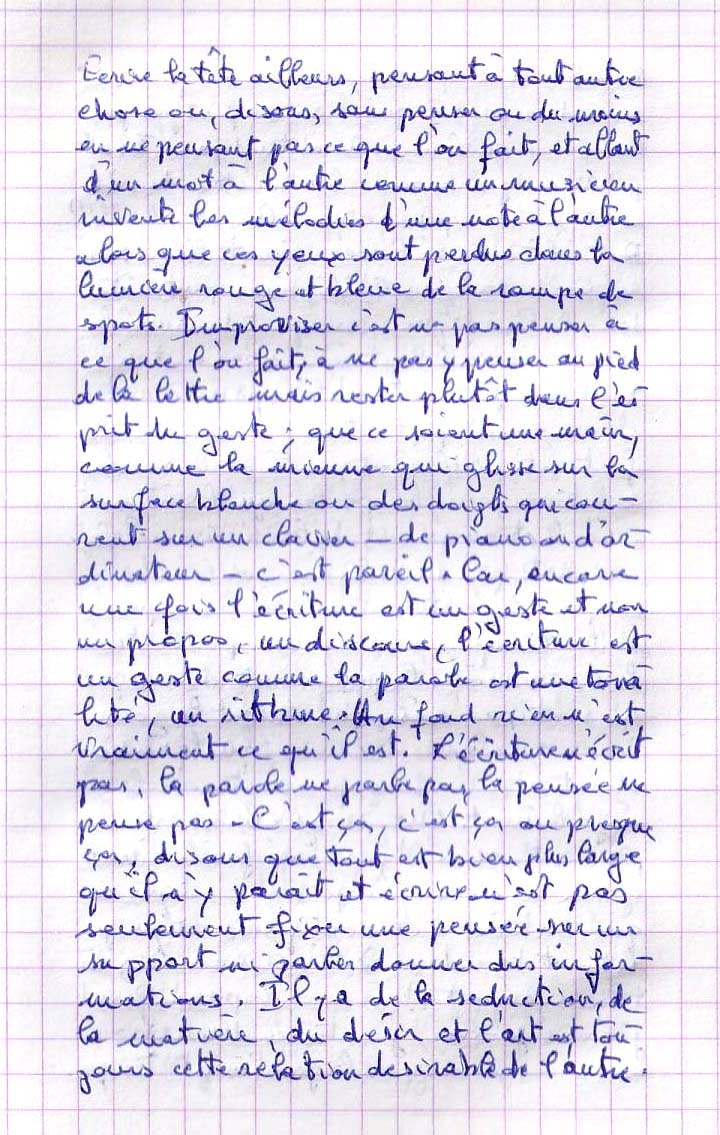 Ecrire la tête ailleurs, pensant à tout autre
chose ou, disons, sans penser ou du moins
en ne pensant pas ce que l'on fait, et allant
d'un mot à l'autre comme un musicien
invente les mélodies d'une note à l'autre
alors que ces yeux sont perdus dans la
lumière rouge et bleue de la rampe de
spots. Improviser c'est ne pas penser à
ce que l'on fait, à ne pas y penser au pied
de la lettre mais rester plutôt dans l'es
prit du geste ; que ce soient une main,
comme la mienne qui glisse sur la
surface blanche ou des doigts qui cou-
rent sur un clavier — de piano ou d'or-
dinateur — c'est pareil. Car, encore
une fois l'écriture est un geste et non
un propos, un discours, l'écriture est
un geste comme la parole est une tona
lité, un rithme. Au fond rien n'est
vraiment ce qu'il est. L'écriture n'écrit
pas, la parole ne parle pas, la pensée ne
pense pas - C'est ça, c'est ça ou presque
ça, disons que tout est bien plus large
qu'il n'y paraît et écrire n'est pas
seulement fixer une pensée sur un
support ni parler donner des infor-
mations. Il y a de la seduction, de
la matière, du désir et l'art est tou
jours cette relation desirable de l'autre.